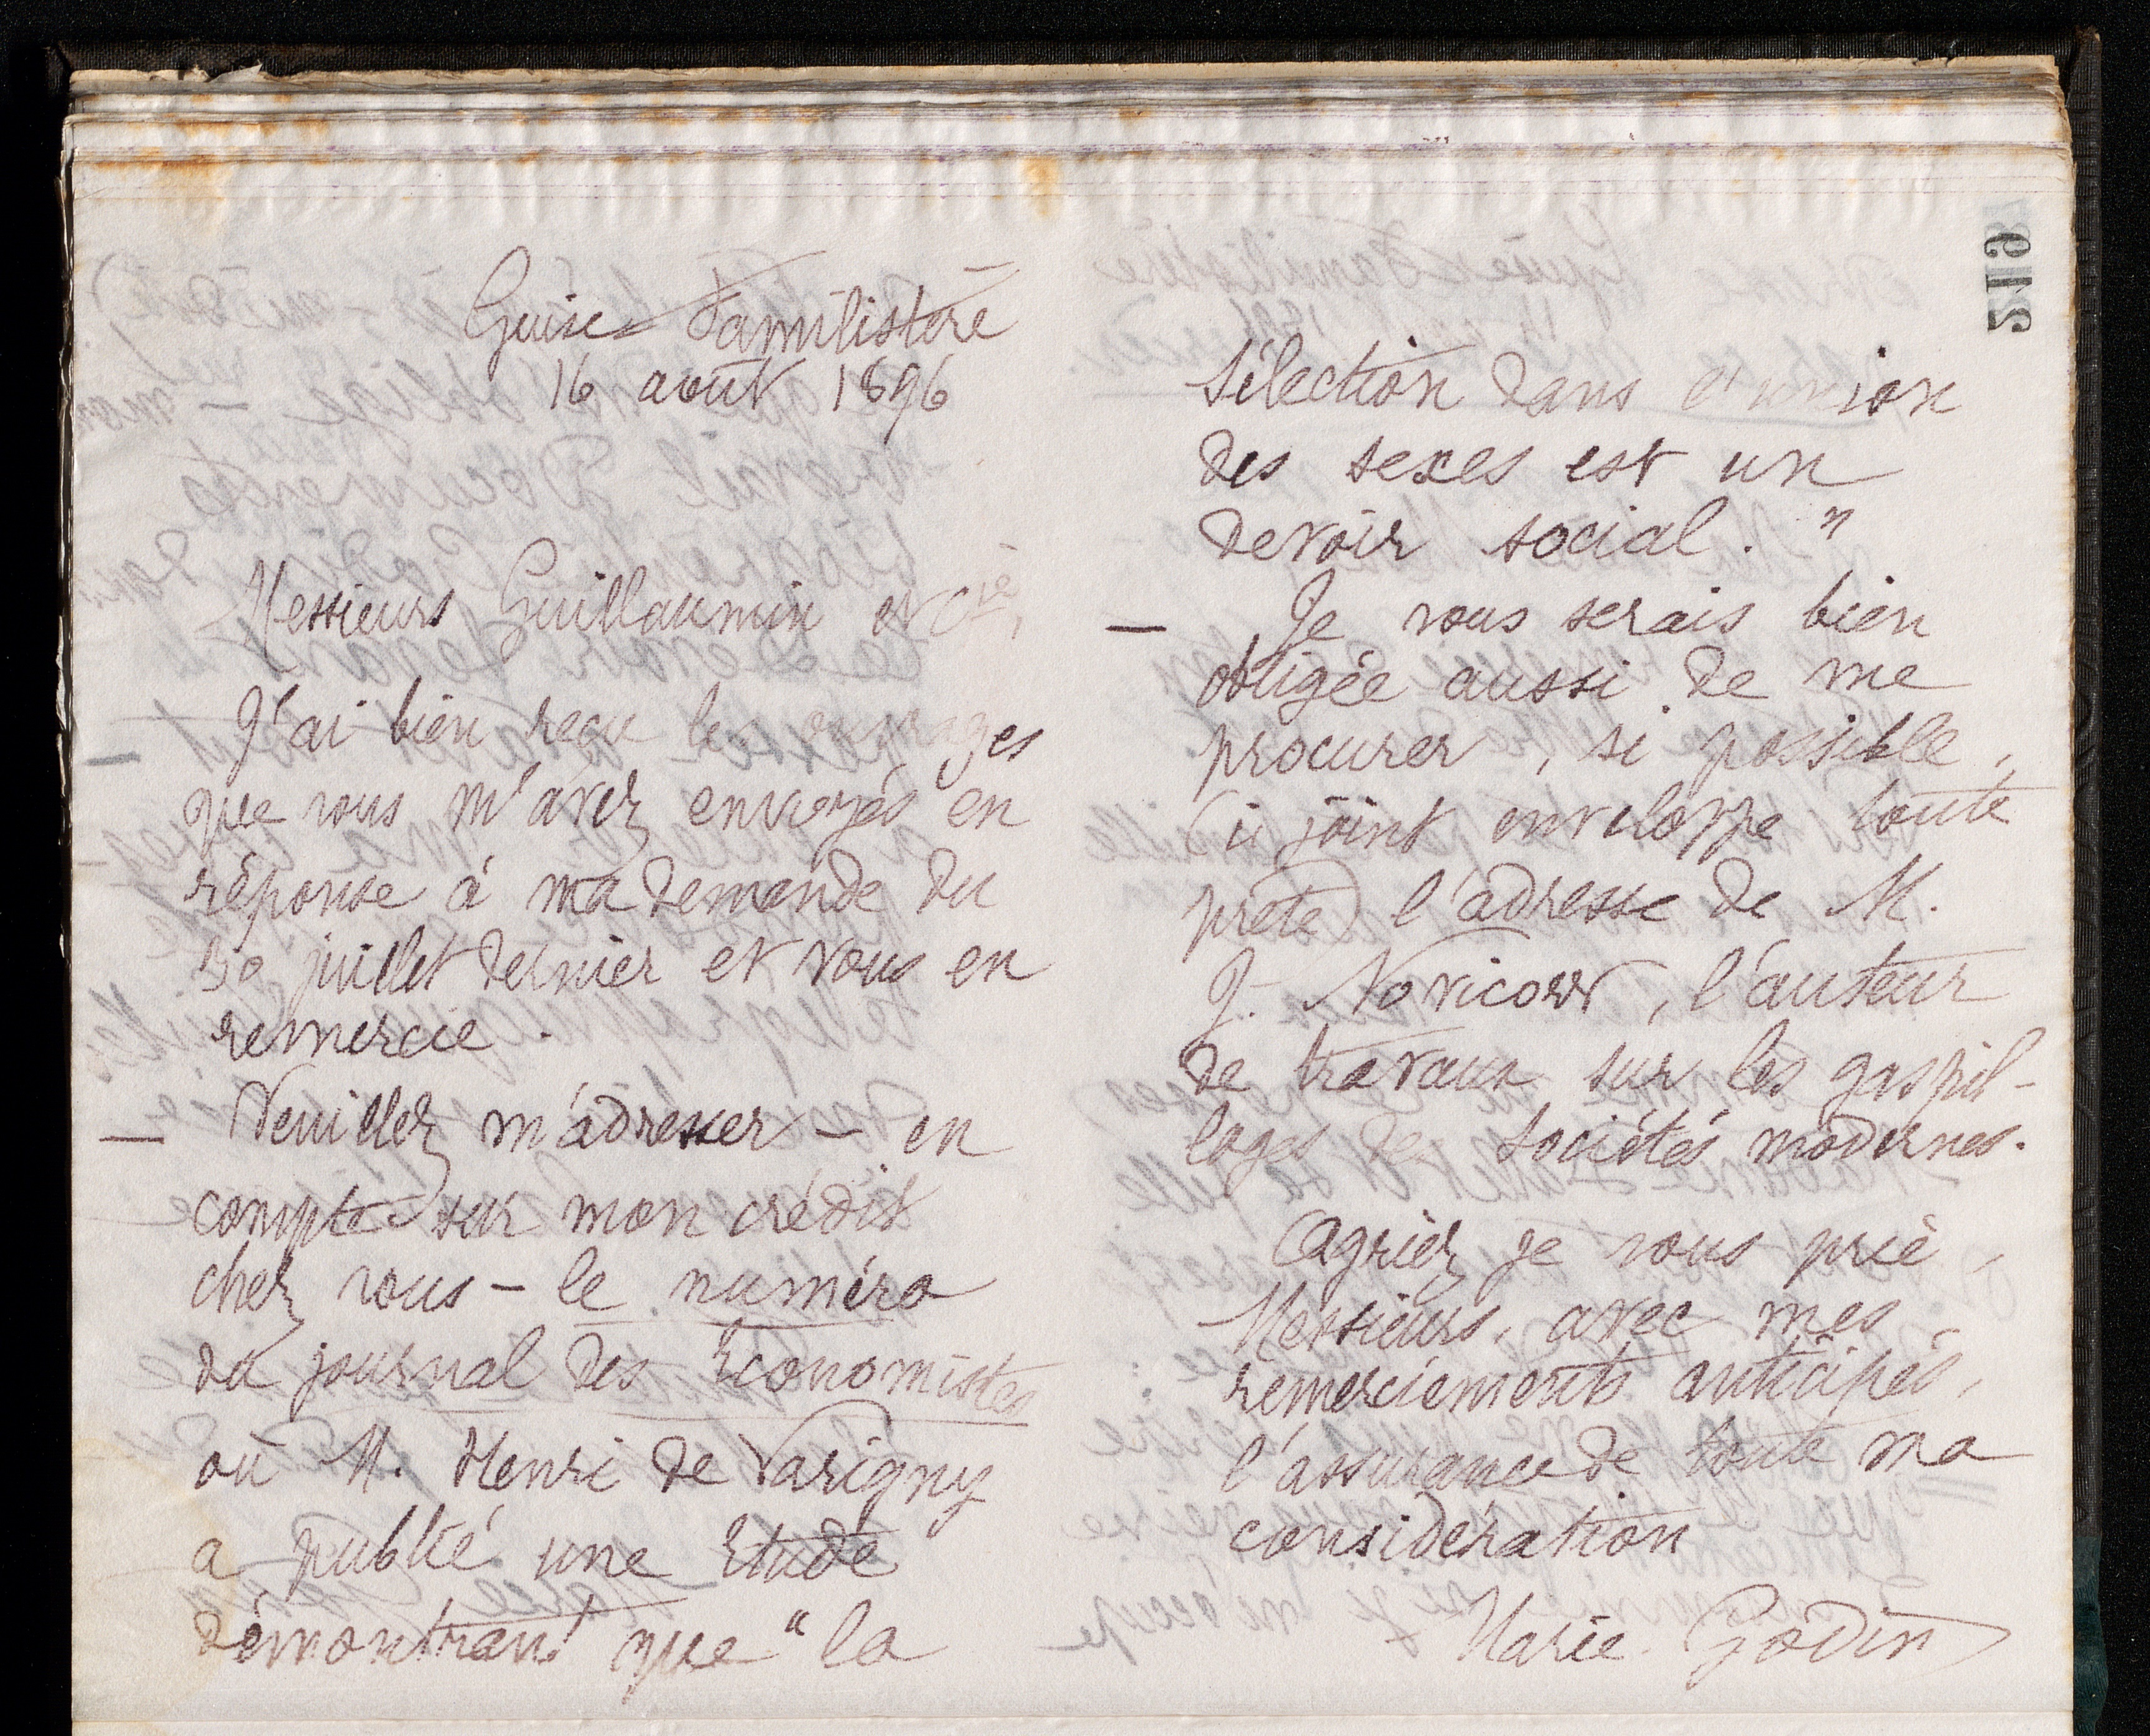 Guise Familistère
16 août 1896
Messieurs Guillaumin et Cie,
J'ai bien reçu les ouvrages
que vous m'avez envoyés en
réponse à ma demande du
30 juillet dernier et vous en
remercie.
— Veuillez m'adresser — en
compte sur mon crédit
chez vous — le numéro
du journal des Economistes
où M. Henri de Varigny
a publié une Etude
démontrant que "la
sélection dans l'union
des sexes est un
devoir social."
— Je vous serais bien
obligée aussi de me
procurer, si possible,
(ci joint enveloppe toute
prête) l'adresse de M.
J. Novicow, l'auteur
de travaux sur les gaspil-
lages des Sociétés modernes.
Agréez je vous prie,
Messieurs, avec mes
remerciements anticipés,
l'assurance de toute ma
considération
Marie Godin